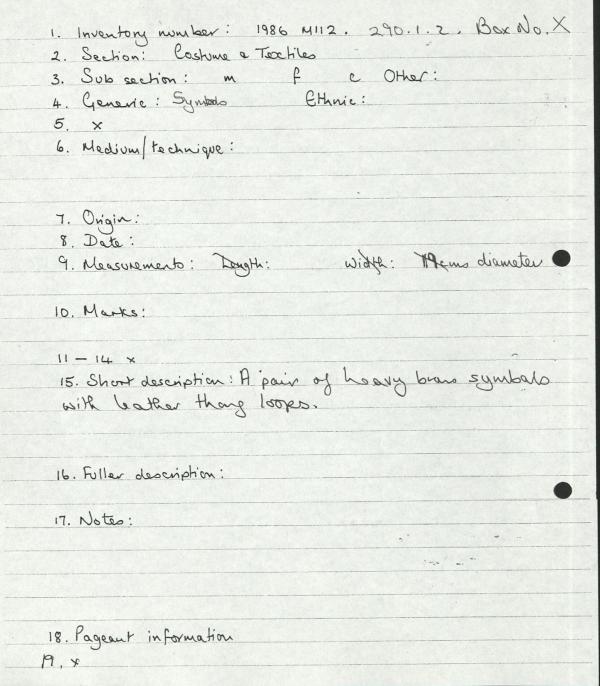 1. Inventory number: 1986 M112. 290.1.2. Box No. X
2. Section: Costume & Textiles
3. Sub section: m f c Other:
4. Generic: Symbals Ethnic:
5. x
6. Medium/technique:
7. Origin:
8. Date:
9. Measurements: Length: Width: 19cms diameter
10. Marks:
11 – 14 x
15. Short description: A pair of heavy brass symbals
with leather thong loops.
16. Fuller description:
17. Notes:
18. Pageant information
19. x